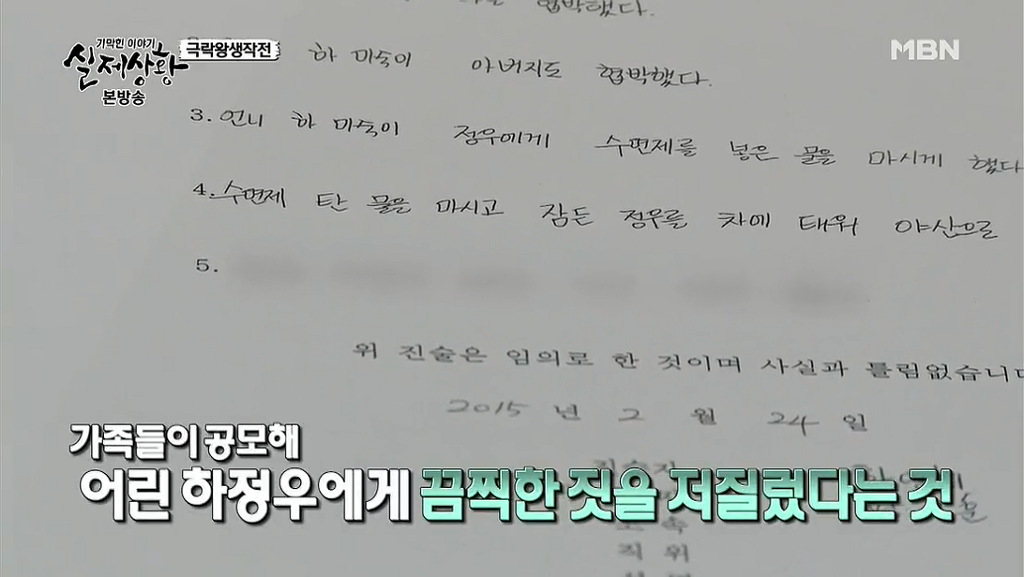 기막힌 이야기
실제상황
본방송
극락왕생작전
MBN
협박했다.
하 미숙이 아버지도 협박했다.
3. 언니 하 미숙이 정우에게 수면제를 넣은 물을 마시게 했다
4. 수면제 탄 물을 마시고 잠든 정우를 차에 태워 야산으로
5.
위 진술은 임의로 한 것이며 사실과 틀림없습니다
2015 년 2 월 24 일
가족들이 공모해
어린 하정우에게 끔찍한 짓을 저질렀다는 것
직 위